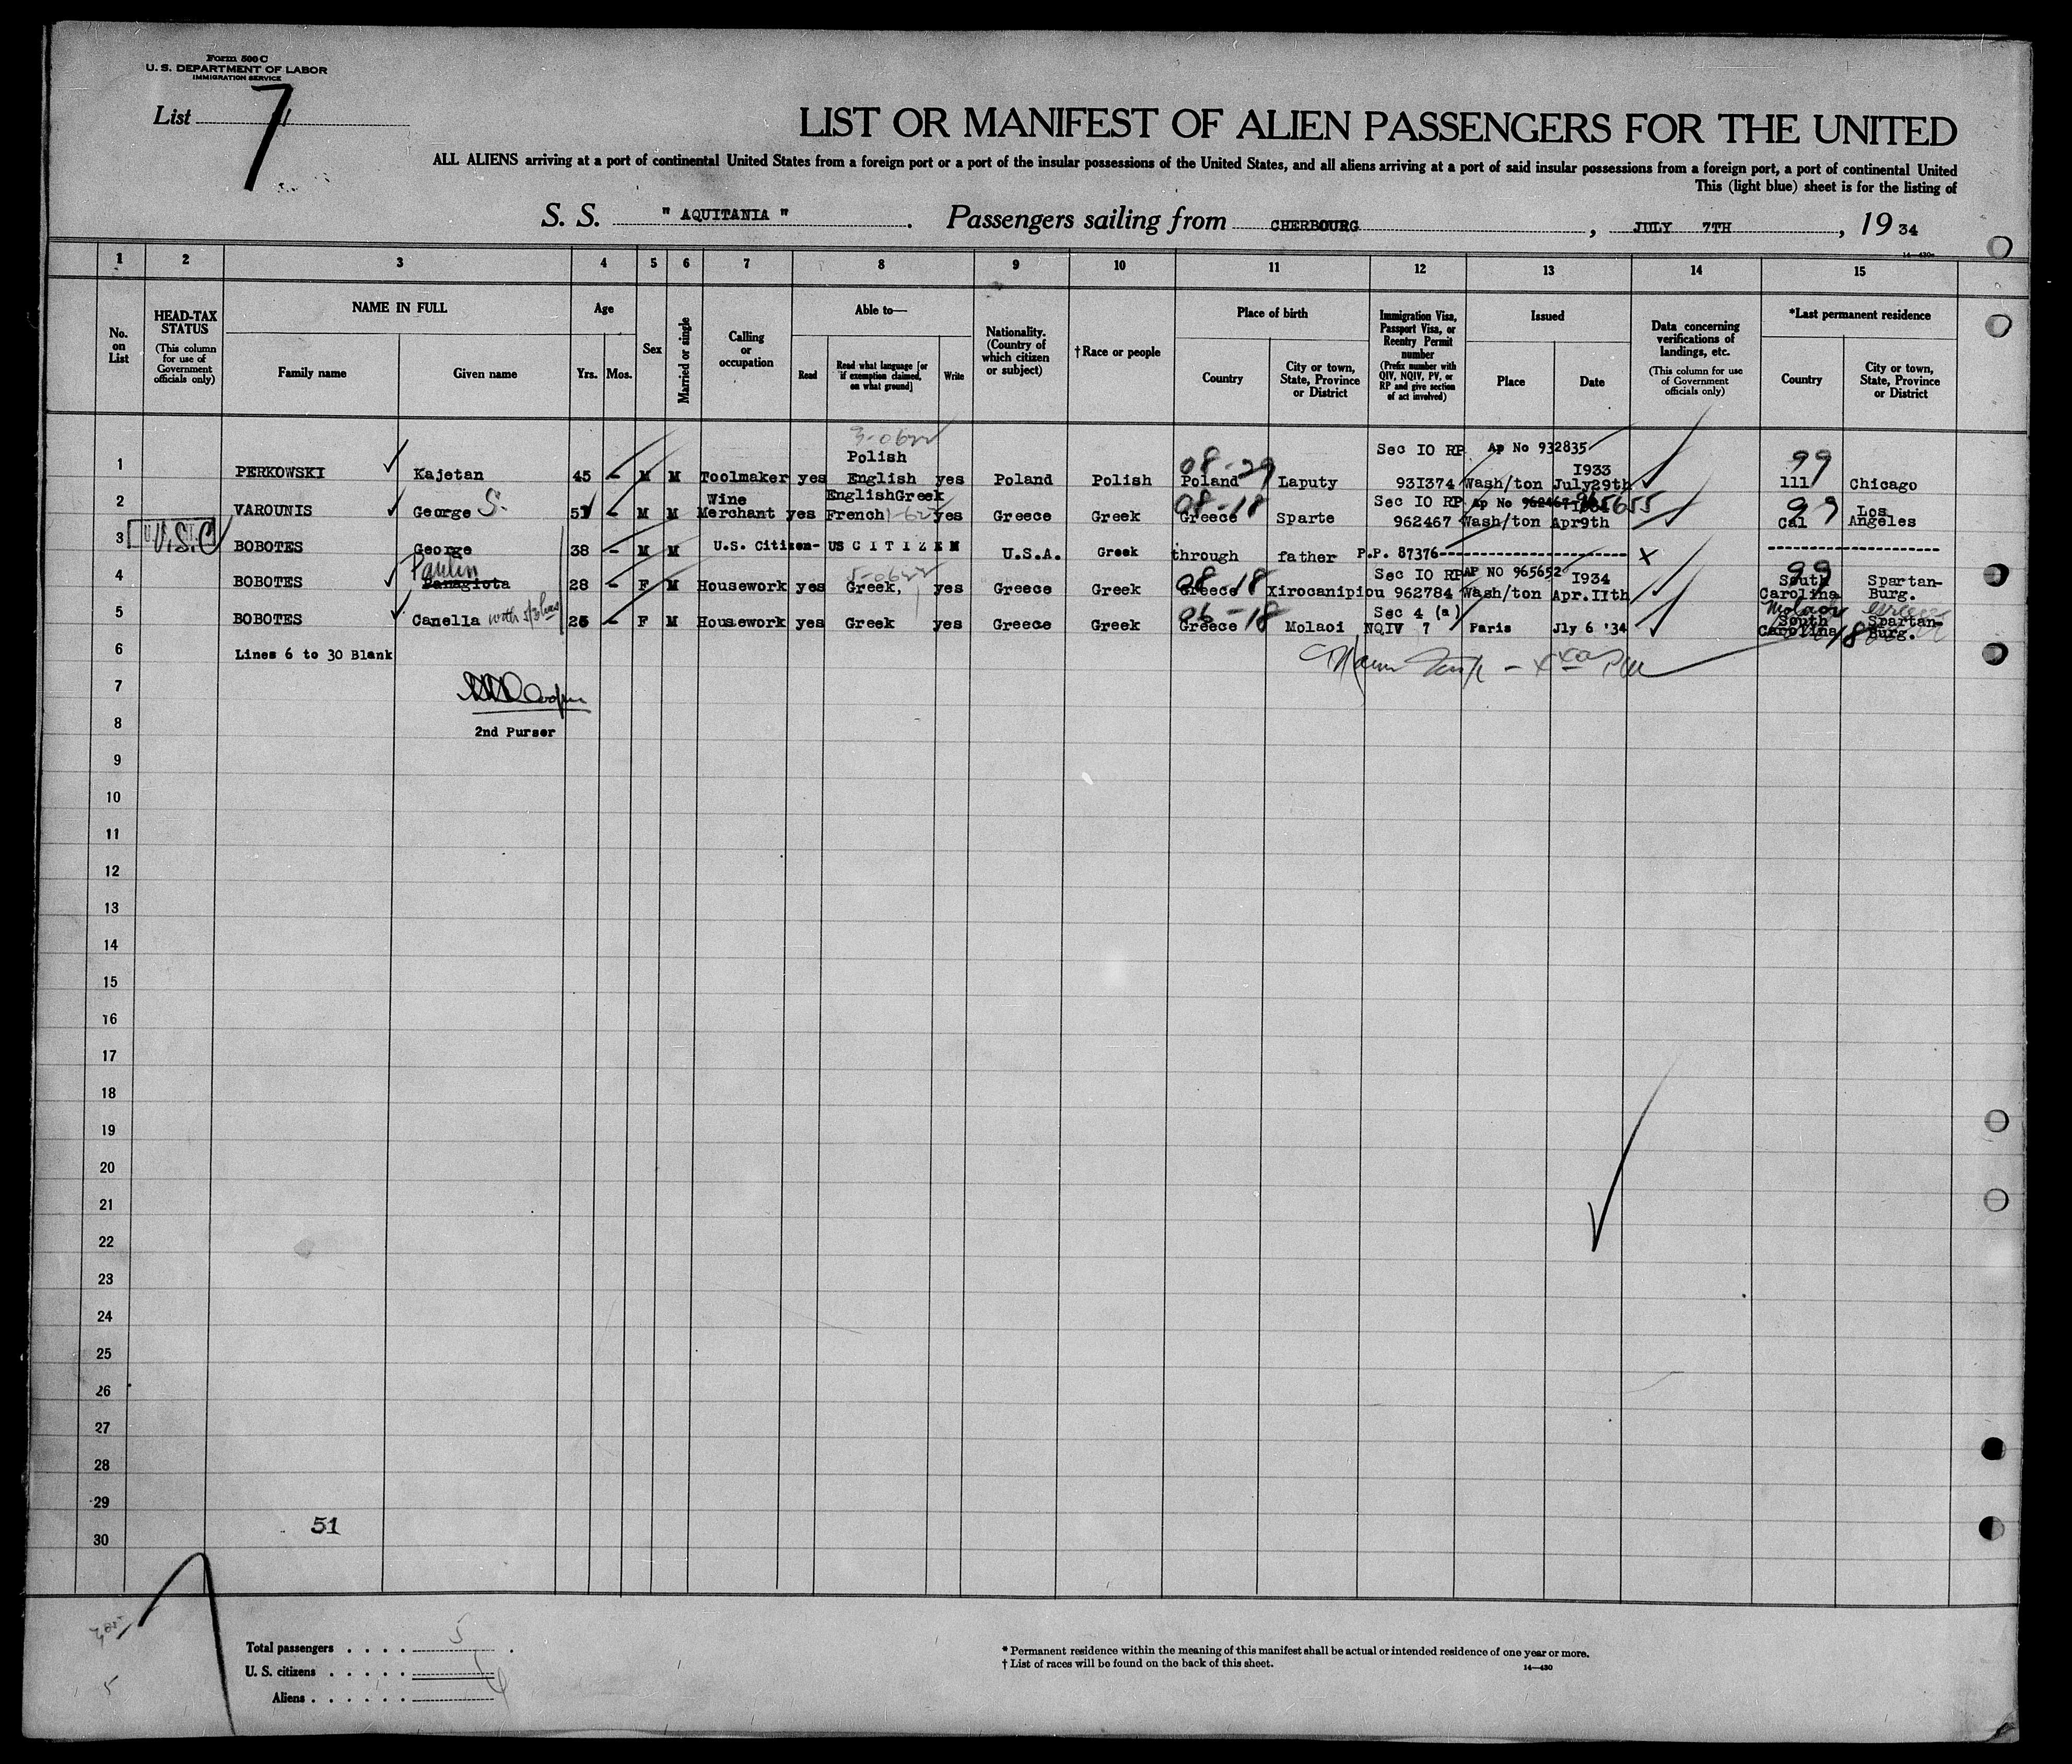 Form 500 C
U. S. DEPARTMENT OF LABOR
IMMIGRATION SERVICE
List 7
LIST OR MANIFEST OF ALIEN PASSENGERS FOR THE UNITED
ALL ALIENS arriving at a port of continental United States from a foreign port or a port of the insular possessions of the United States, and all aliens arriving at a port of said insular possessions from a foreign port, a port of continental United
This (light blue) sheet is for the listing of
S. S. " AQUITANIA ". Passengers sailing from CHERBOURG, JULY 7TH, 19 34
14—430
1 2 3 4 5 6 7 8 9 10 11 12 13 14 15
No. on List
HEAD-TAX STATUS (This column for use of Government officials only)
NAME IN FULL
Family name Given name
Age
Yrs. Mos.
Sex
Married or single
Calling or occupation
Able to—
Read Read what language [or if exemption claimed, on what ground] Write
Nationality. (Country of which citizen or subject)
† Race or people
Place of birth
Country City or town, State, Province or District
Immigration Visa, Passport Visa, or Reentry Permit number (Prefix number with QIV, NQIV, PV, or RP and give section of act involved)
Issued
Place Date
Data concerning verifications of landings, etc. (This column for use of Government officials only)
*Last permanent residence
Country City or town, State, Province or District
Polish Sec IO RP Ap No 932835
1 PERKOWSKI Kajetan 45 - M M Toolmaker yes English yes Poland Polish 08-29 Poland Laputy 93I374 Wash/ton I933 July29th 99 lll Chicago
Wine EnglishGreek Sec IO RP Ap No 962467 965655
2 VAROUNIS George S. 51 - M M Merchant yes French yes Greece Greek 08-18 Greece Sparte 962467 Wash/ton Apr9th 99 Cal Los Angeles
3 U.S.C BOBOTES George 38 - M M U.S. Citizen- US C I T I Z E N U.S.A. Greek through father P.P. 87376 x
Paulin Sec IO RP AP NO 965652 I934
4 BOBOTES Panagiota 28 - F M Housework yes Greek, yes Greece Greek 08-18 Greece Xirocanipiou 962784 Wash/ton Apr.IIth 99 South Carolina Spartan-Burg.
Sec 4 (a) Molaoi Greece
5 BOBOTES Canella 26 - F M Housework yes Greek yes Greece Greek 06-18 Greece Molaoi NQIV 7 Paris Jly 6 '34 South Carolina Spartan-Burg.
6 Lines 6 to 30 Blank
7
8 2nd Purser
9
10
11
12
13
14
15
16
17
18
19
20
21
22
23
24
25
26
27
28
29
51
30
Total passengers . . . . 5
U. S. citizens . . . . .
Aliens . . . . . .
5
* Permanent residence within the meaning of this manifest shall be actual or intended residence of one year or more.
† List of races will be found on the back of this sheet.
14—430